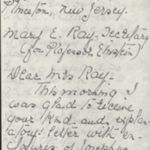 Princeton, New Jersey.
Mary E. Ray - Secretary
(for Professor Einstein)
Dear Mrs Ray -
This morning I
was glad to receive
your kind and explan-
atory letter with en-
closures of